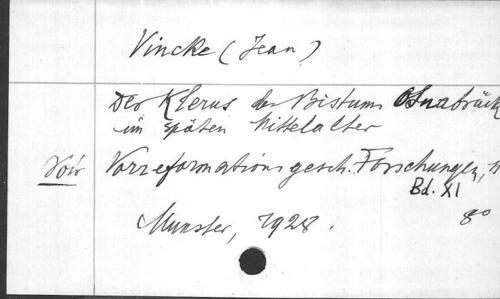 Vincke (Jean)
Der Klerus des Bistums Osnabrück
im späten Mittelalter
Voir Vorreformationsgesch. Forschungen,
Bd. XI
Munster, 1928. 8°